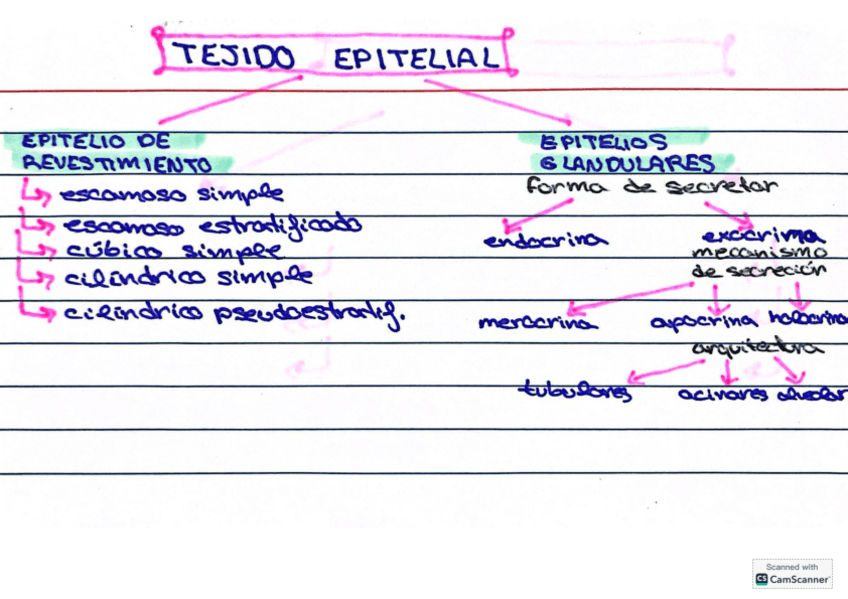 TEJIDO EPITELIAL
EPITELIO DE
REVESTIMIENTO
escamoso simple
escamoso estratificado
cúbico simple
cilíndrico simple
cilíndrico pseudoestratif.
EPITELIOS
GLANDULARES
forma de secretar
endocrina exocrina
mecanismo
de secreción
merocrina apocrina holocrina
arquitectura
tubulares acinares alveolar
Scanned with
CS CamScanner